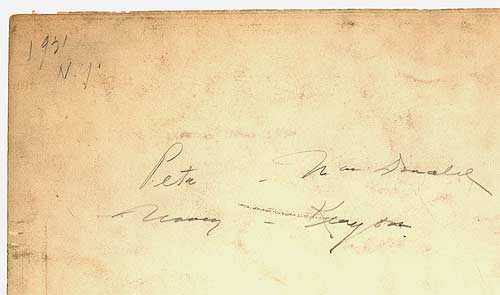 1931
N.J.
Pete - MacDonald
Nancy - Kenyon.